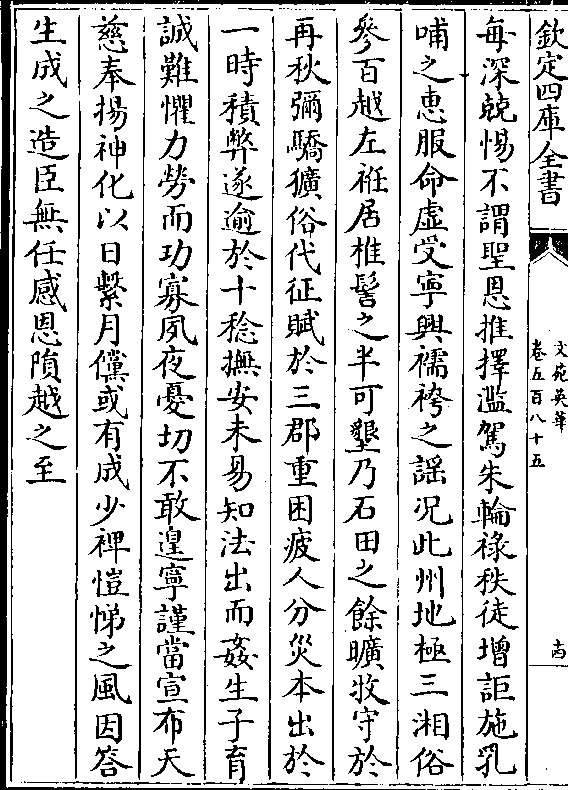 欽定四庫全書
文苑英華
卷五百八十五
十四
每深兢惕不謂聖恩推擇濫駕朱輪祿秩徒增詎施乳
哺之恵服命虛受寧興襦袴之謡况此州地極三湘俗
參百越左衽居椎髻之半可墾乃石田之餘曠牧守於
再秋彌驕獷俗代征賦於三郡重困疲人分災本出於
一時積弊遂逾於十稔撫安未易知法出而姦生子育
誠難懼力勞而功寡夙夜憂切不敢遑寧謹當宣布天
慈奉揚神化以日繫月儻或有成少裨愷悌之風因答
生成之造臣無任感恩隕越之至